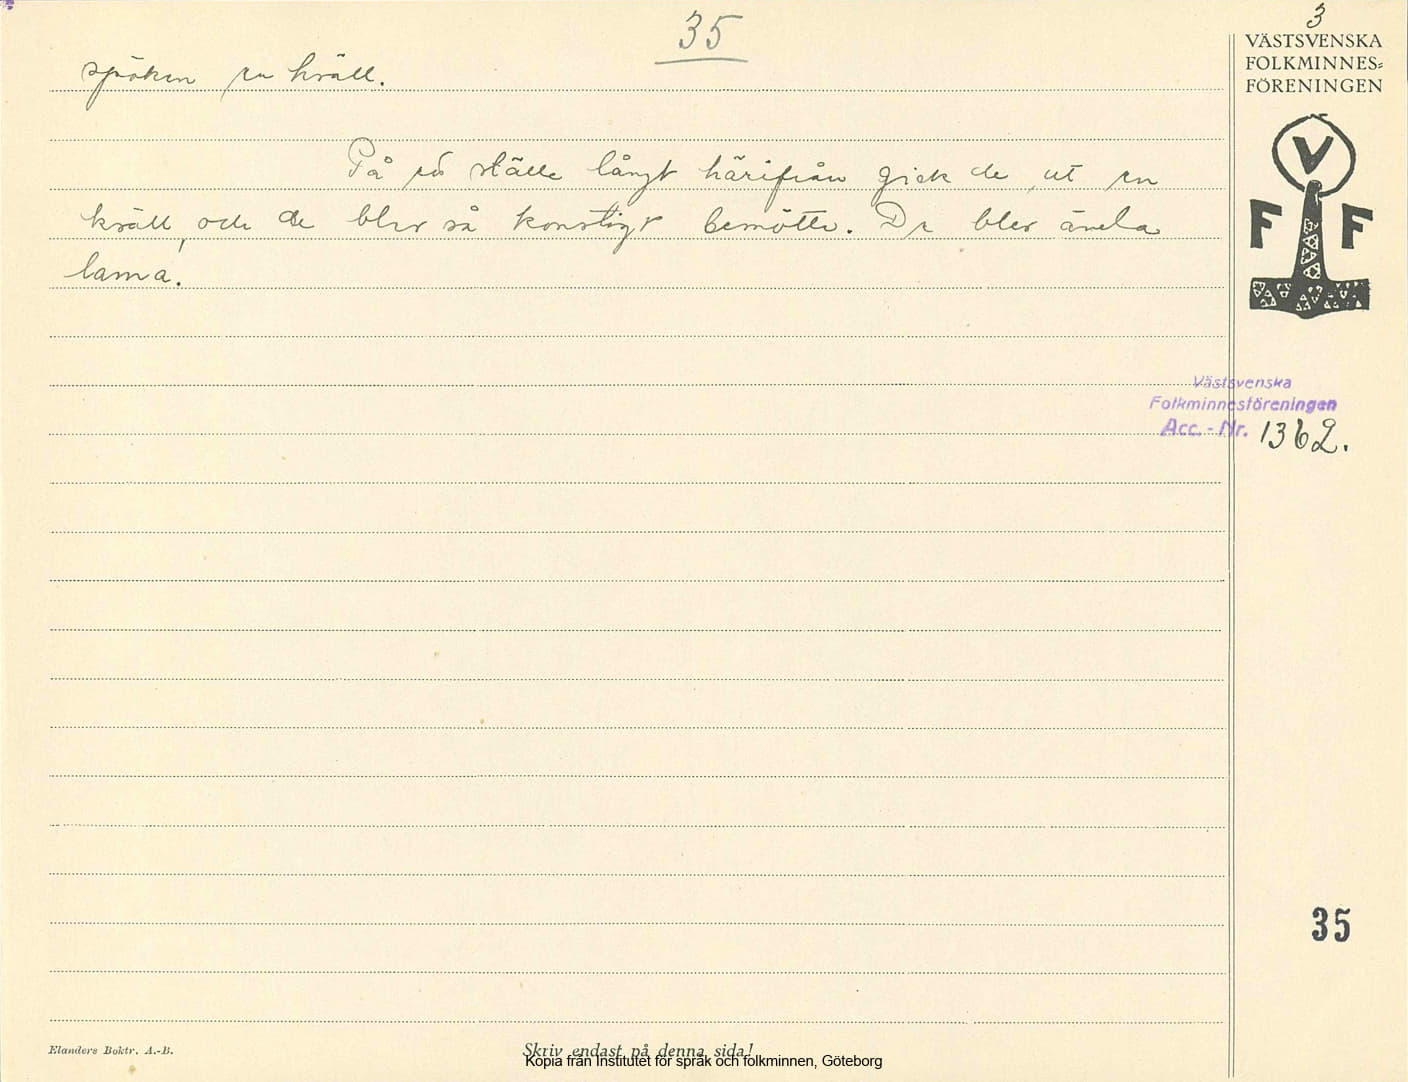 35
3
VÄSTSVENSKA
FOLKMINNES=
FÖRENINGEN
V
F F
spöken en kväll.
På ett ställe långt härifrån gick de ut en
kväll, och de blev så konstigt bemötta. De blev ända
lama.
Västsvenska
Folkminnesföreningen
Acc.-Nr. 1362.
35
Elanders Boktr. A.-B.
Skriv endast på denna sida!
Kopia från Institutet för språk och folkminnen, Göteborg